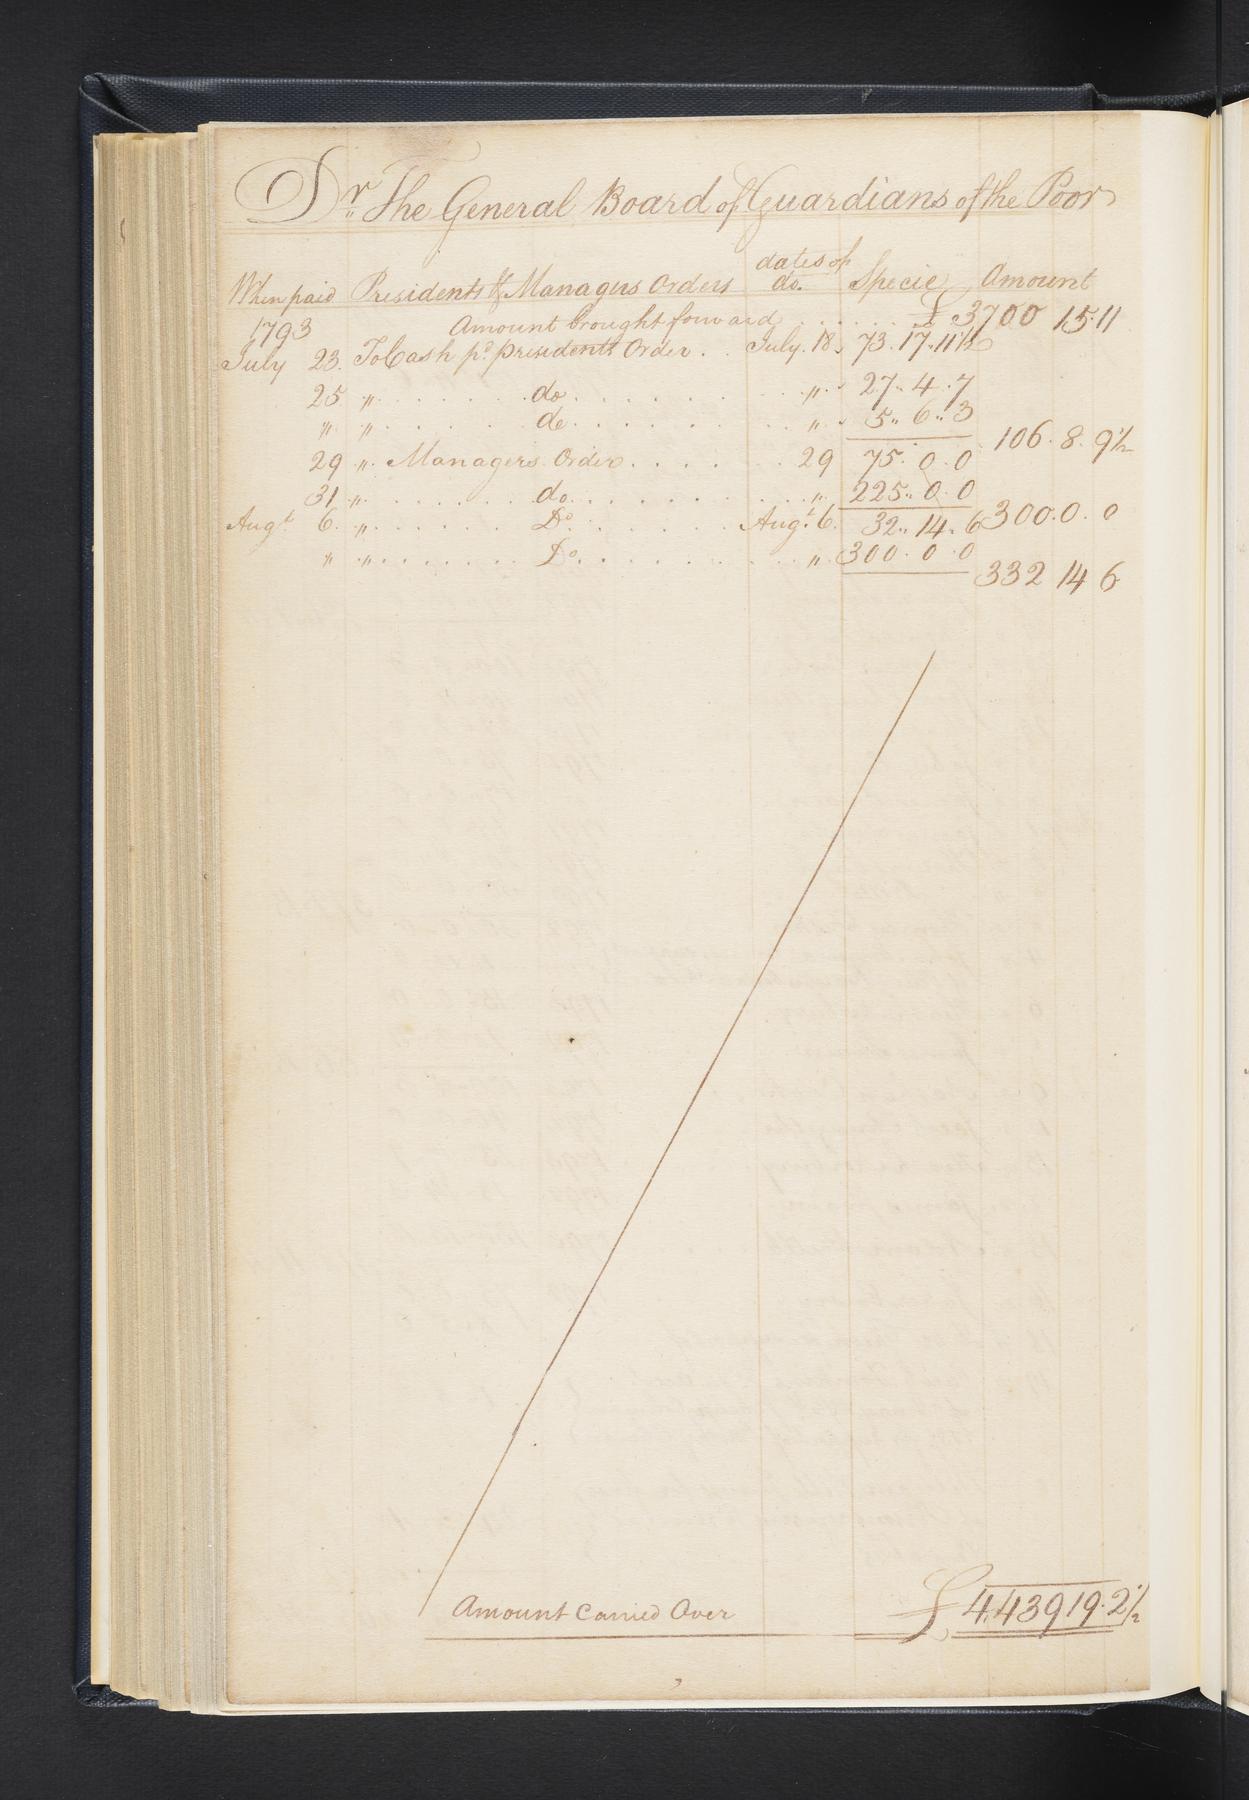 Dr. The General Board of Guardians of the Poor
When paid Presidents & Managers Orders dates of do. Specie Amount
1793 Amount brought forward . . . . . . . £ 3700 15.11
July 23. To Cash pr. presidents Order . . July. 18. 73.17.11½
25 " . . . . . . do . . . . . . . . " 27..4.7
" " . . . . . do . . . . . . . . " 5..6..3
106.8.9½
29 ". Managers Order . . . . . . 29 75.0.0
31 " . . . . . . do . . . . . . . . " 225..0.0
300.0.0
Augt. 6. " . . . . . . Do . . . . . . Augt. 6. 32..14.6
" " . . . . . . . Do . . . . . . . . " 300.0.0
332 14 6
Amount Carried Over £ 4.439 19.2½